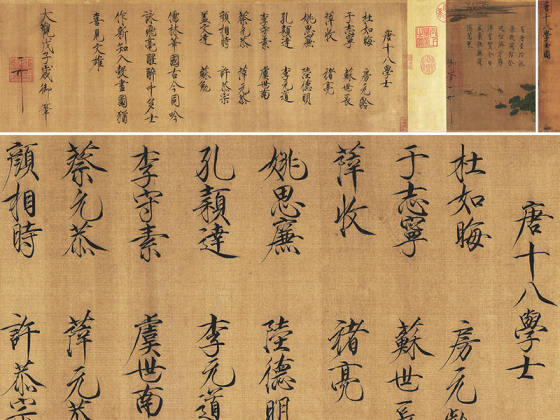 唐十八學士
杜如晦 房元齡
于志寧 蘇世長
薛收 褚亮
姚思廉 陸德明
孔穎達 李元道
李守素 虞世南
蔡元恭 薛元恭
顏相時 許恭宗
蓋文達 蘇勗
儒林華國古今同吟
詠飛毫醒醉中多士
作新知入彀畫圖猶
喜見文雄
大觀戊子歲御筆
唐十八學士
杜如晦 房元齡
于志寧 蘇世長
薛收 褚亮
姚思廉 陸德明
孔穎達 李元道
李守素 虞世南
蔡元恭 薛元恭
顏相時 許恭宗